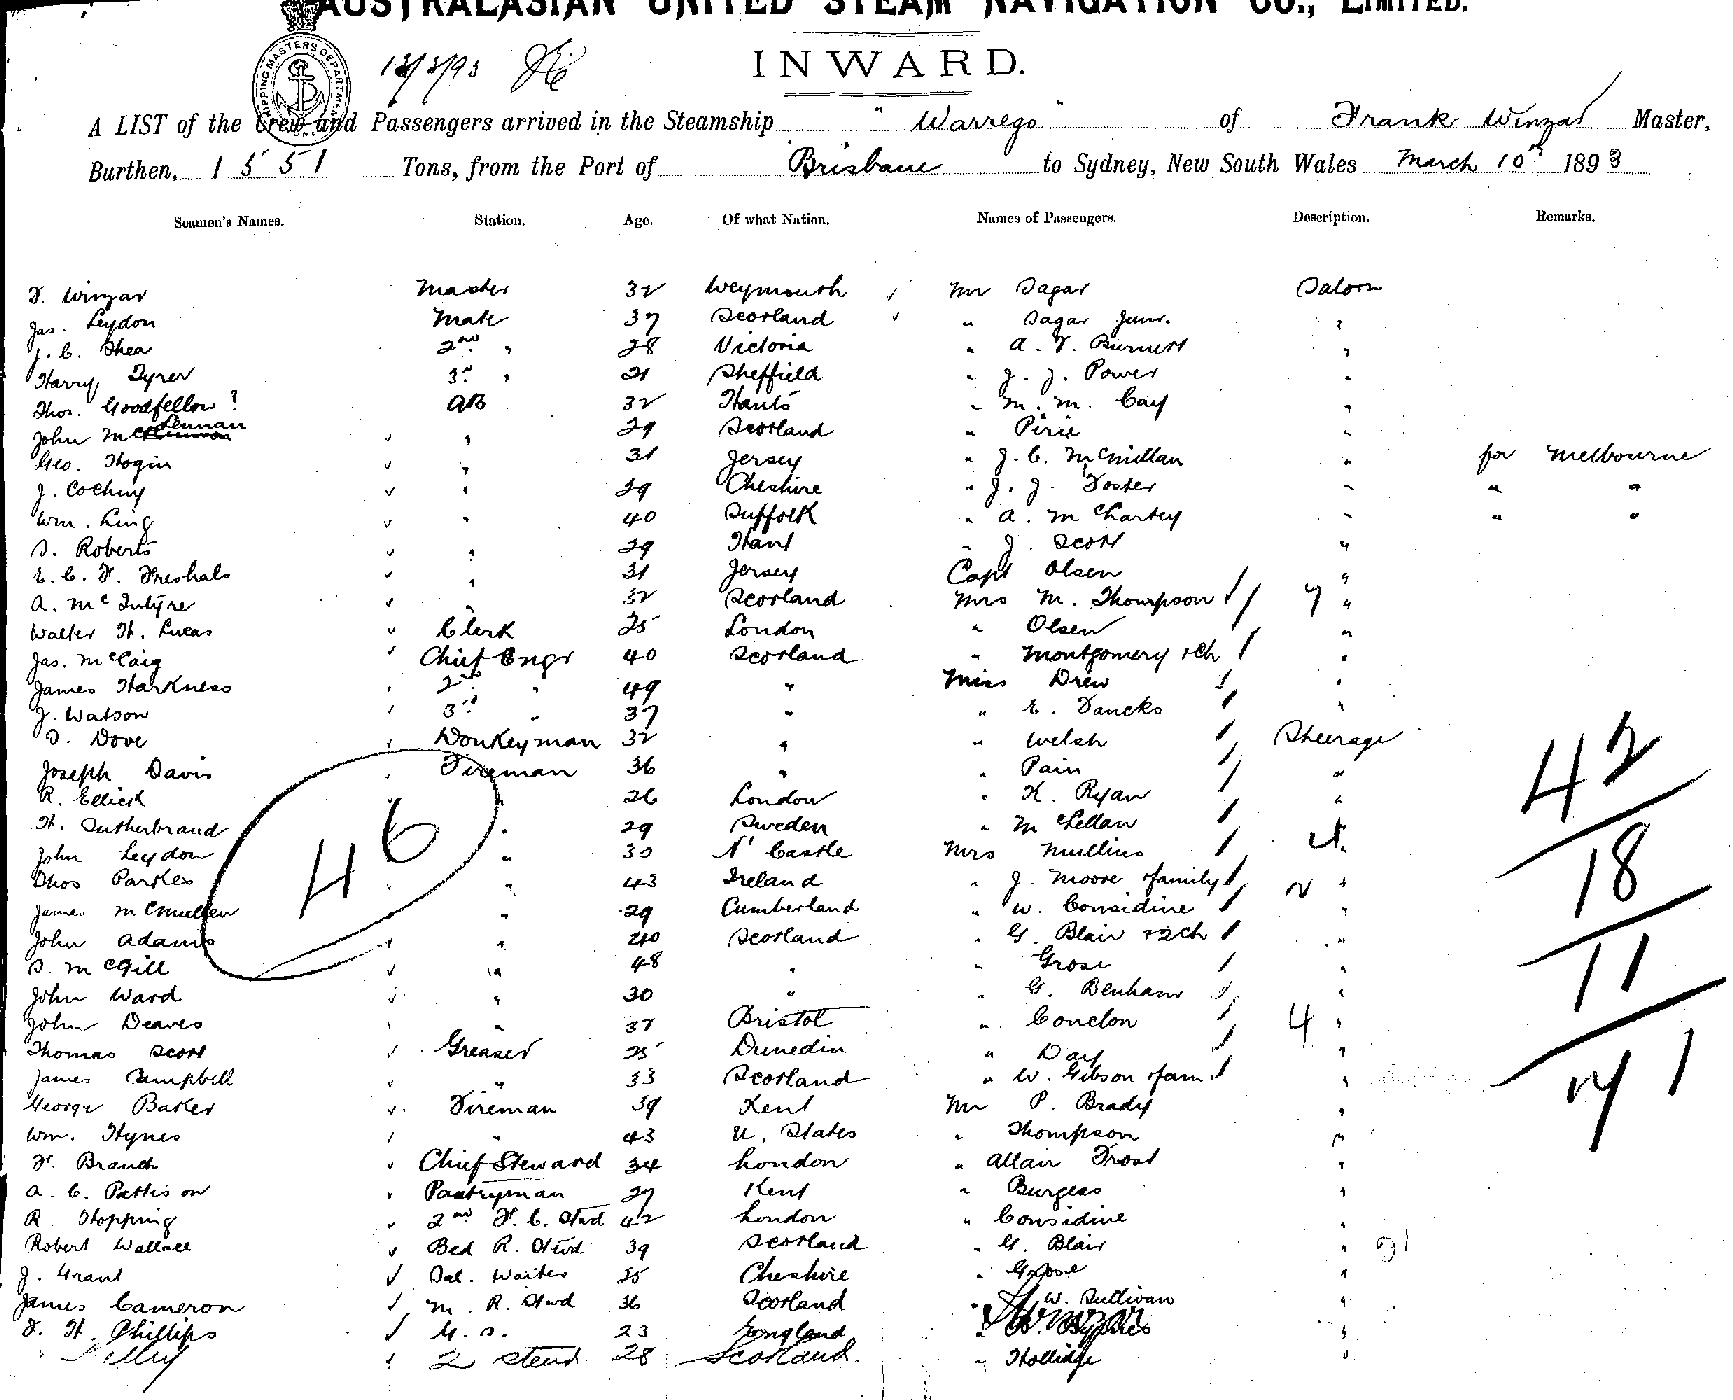 AUSTRALASIAN UNITED STEAM NAVIGATION CO., LIMITED.
INWARD.
A LIST of the Crew and Passengers arrived in the Steamship "Warrego" of Frank Winzar Master,
Burthen, 1551 Tons, from the Port of Brisbane to Sydney, New South Wales March 10th 1893
Seamen's Names. Station. Age. Of what Nation. Names of Passengers. Description. Remarks.
F. Winzar Master 32 Weymouth Mr Sagar Saloon
Jas. Leydon Mate 37 Scotland " Sagar Junr. "
J. C. Shea 2nd " 28 Victoria " A. F. Burnett "
Harry Tyrer 3rd " 21 Sheffield " J. J. Power "
Thos. Goodfellow ? AB 32 Hants " M. M. Cay "
John McLennan " 29 Scotland " Pirie "
Geo. Hogin " 31 Jersey " J. C. McMillan " for Melbourne
J. " 29 Cheshire " J. J. Foster " " "
Wm. Ling " 40 Suffolk " A. McChartey " " "
S. Roberts " 29 Hant " J. Scott "
E. C. F. " 31 Jersey Capt Olsen "
A. McIntyre " 32 Scotland Mrs M. Thompson 7 "
Walter H. Lucas Clerk 25 London " Olsen "
Jas. McCaig Chief Engr 40 Scotland " Montgomery + Ch "
James Harkness 2nd " 49 " Miss Drew "
J. Watson 3rd " 37 " " E. Dancks "
S. Dove Donkeyman 32 " " Welsh Steerage
Joseph Davis Fireman 36 " " Pain "
R. " 26 London " K. Ryan "
H. Sutherbrand " 29 Sweden " McLellan "
John Leydon " 30 N'Castle Mrs Mullins "
Thos Parkes " 43 Ireland " J. Moore + family "
James McMullen " 29 Cumberland " W. Considine "
John Adams " 40 Scotland " G. Blair + 2 Ch "
S. McGill " 48 " " Grose "
John Ward " 30 " " G. Benham "
John Deaves " 37 Bristol " 4 "
Thomas Scott Greaser 25 Dunedin " Day "
James Campbell " 33 Scotland " W. Gibson + fam "
George Barker Fireman 39 Kent Mr P. Brady "
Wm. Hynes " 43 U. States " Thompson "
F. Branch Chief Steward 34 London " Allair Frost "
A. C. Pattison Pantryman 27 Kent " Burgess "
R. Hopping 2nd F. C. Stwd 42 London " Considine "
Robert Wallace Bed R. Stwd 39 Scotland " G. Blair "
J. Grant Sal. Waiter 25 Cheshire " Grose "
James Cameron M. R. Stwd 36 Scotland " W. Sullivan "
F. H. Phillips 23 England "
28 Scotland " Hollidge "
46
42
18
11